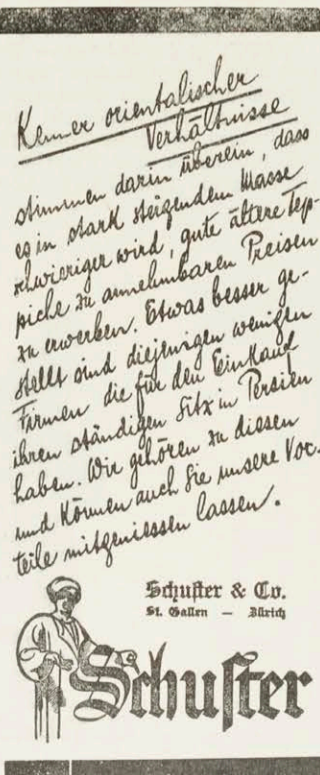 Kenner orientalischer
Verhältnisse
stimmen darin überein, dass
es in stark steigendem Masse
schwieriger wird, gute ältere Tep-
piche zu annehmbaren Preisen
zu erwerben. Etwas besser ge-
stellt sind diejenigen wenigen
Firmen die für den Einkauf
ihren ständigen Sitz in Persien
haben. Wir gehören zu diesen
und können auch Sie unsere Vor-
teile mitgeniessen lassen.
Schuster & Co.
St. Gallen – Zürich
Schuster